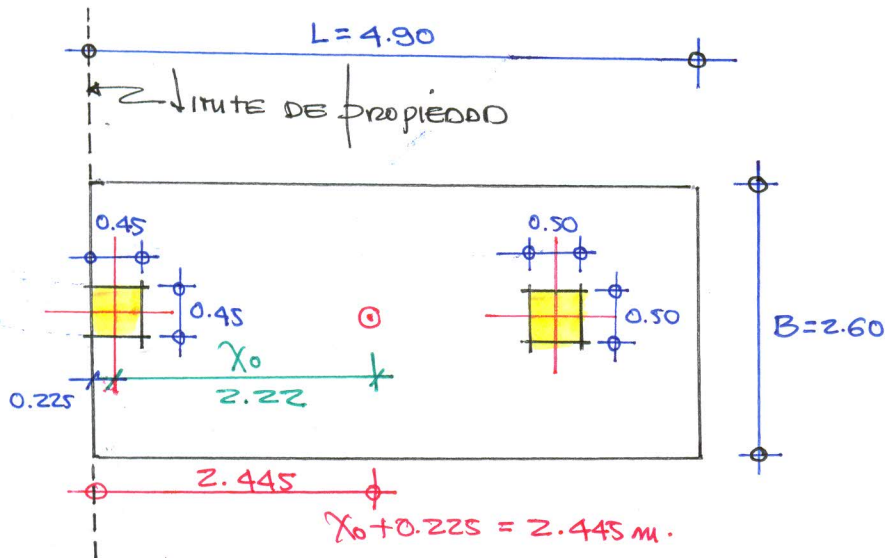 L = 4.90
LIMITE DE PROPIEDAD
0.45
0.50
0.45
0.50
B = 2.60
X₀
0.225
2.22
2.445
X₀ + 0.225 = 2.445 m.